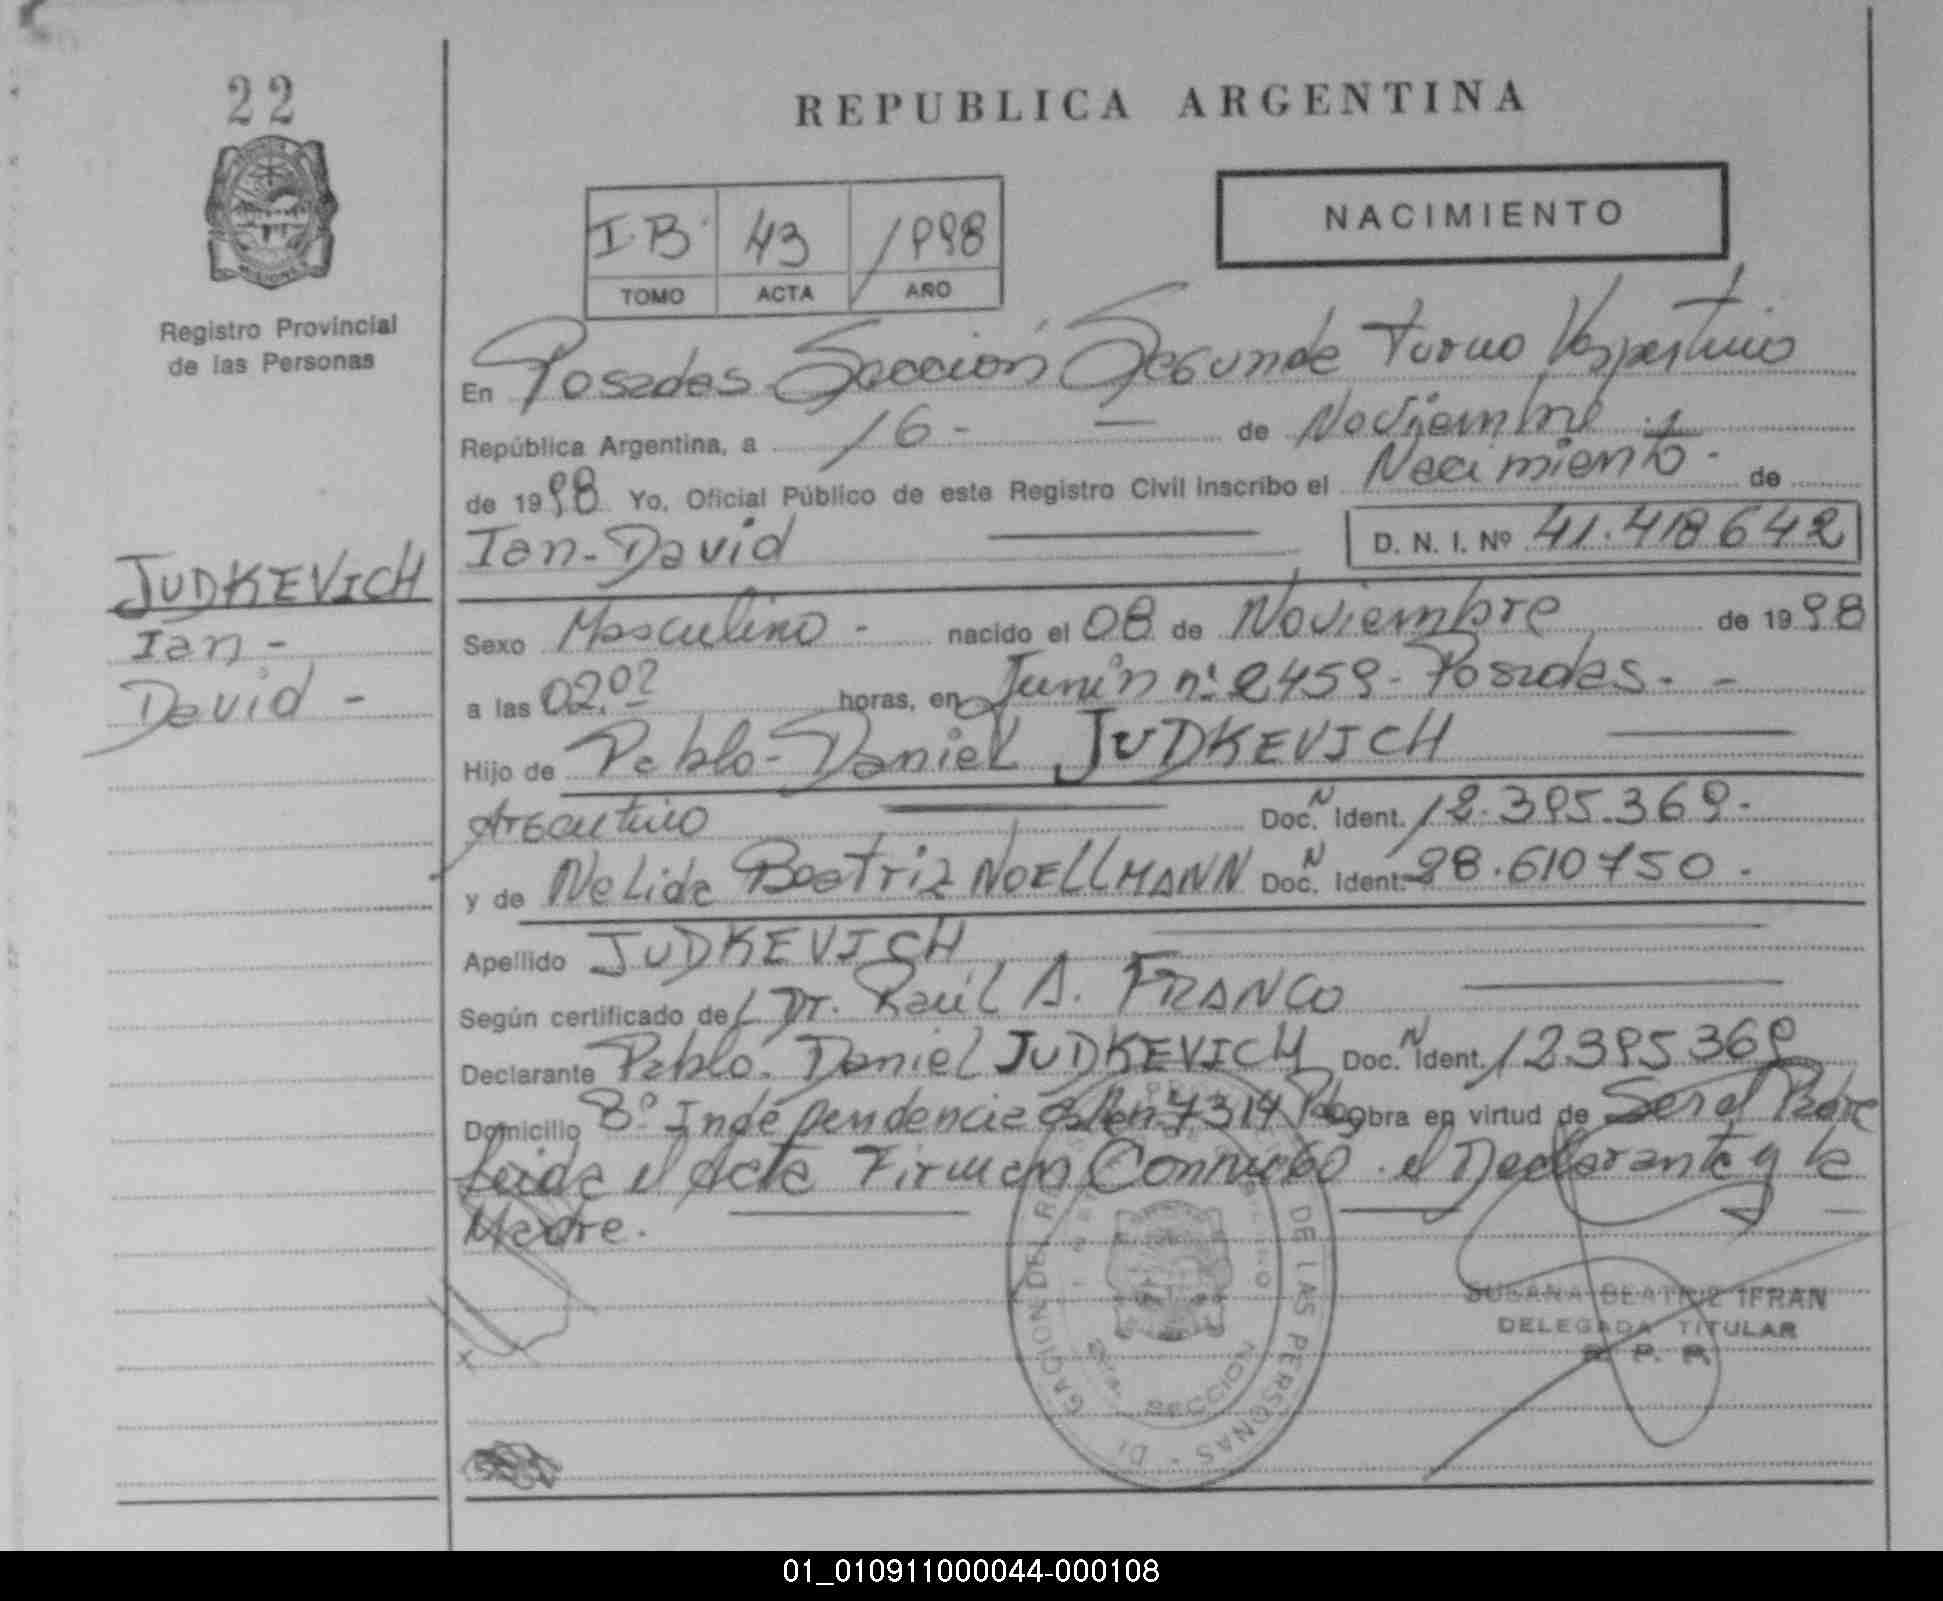 22
REPUBLICA ARGENTINA
NACIMIENTO
I.B. 43 1998
TOMO ACTA AÑO
Registro Provincial
de las Personas
En Posadas Sección Segunda Turno Vespertino
República Argentina, a 16 - de Noviembre
de 1998 Yo, Oficial Público de este Registro Civil inscribo el Nacimiento de
Ian-David D. N. I. Nº 41.418642
JUDKEVICH
Ian -
David -
Sexo Masculino - nacido el 08 de Noviembre de 1998
a las horas, en Junín nº 2459- Posadas.
Hijo de Pablo-Daniel JUDKEVICH
Argentino Doc. N Ident. 12.395.369.
y de Nelida Beatriz NOELLMANN Doc. N Ident. 28.610750.
Apellido JUDKEVICH
Según certificado del Dr. Raúl A. FRANCO
Declarante Pablo. Daniel JUDKEVICH Doc. N Ident. 12395369
Domicilio Bº Independencia 7314 Obra en virtud de Ser el Padre
Leida el Acta Firman Conmigo el Declarante y la
Madre.
DELEGACION DEL REGISTRO PROVINCIAL DE LAS PERSONAS
SECCION
SUSANA BEATRIZ IFRAN
DELEGADA TITULAR
R. P. P.
01_010911000044-000108